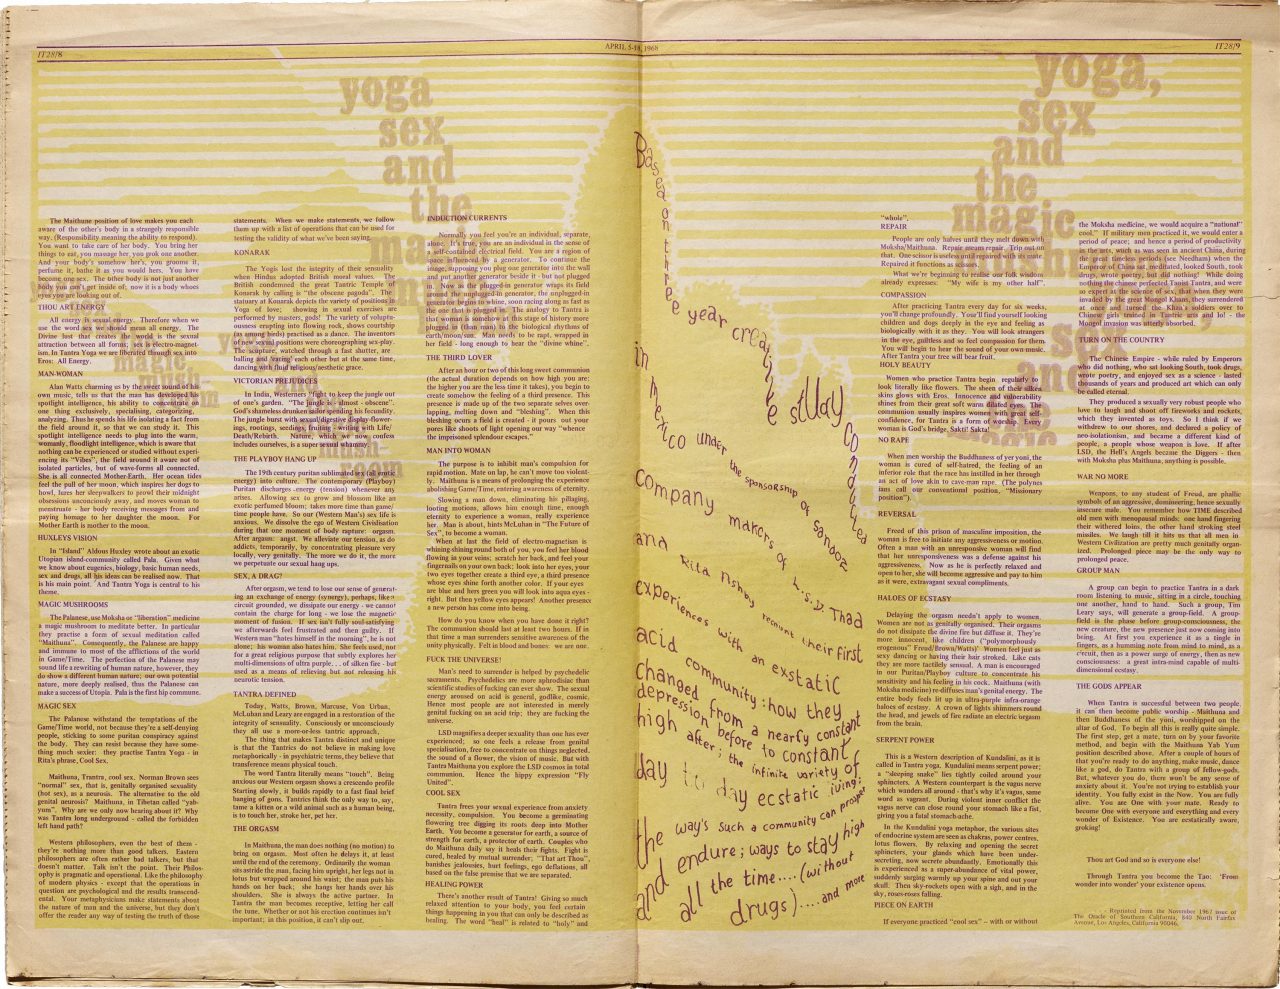 IT28/8
APRIL 5-18, 1968
IT28/9
yoga
sex
and
the
magic
yoga,
sex
and
the
magic
The Maithune position of love makes you each
aware of the other's body in a strangely responsible
way. (Responsibility meaning the ability to respond).
You want to take care of her body. You bring her
things to eat, you massage her, you grok one another.
And your body's somehow her's, you grooms it,
perfume it, bathe it as you would hers. You have
become one sex. The other body is not just another
body to put inside of; now it is a body whoes
eyes you are looking out of.
THOU ART ENERGY
All energy is sexual energy. Therefore when we
use the word sex we mean all energy. The
Divine lust that creates all forms is the sexual
attraction between all forms; sex is electro-magnet-
ism. In Tantra Yoga we are liberated from sex into
Eros: All Energy.
MAN-WOMAN
Alan Watts charming us by the sweet sound of his
own music, tells us that the man has developed his
spotlight intelligence, his ability to concentrate on
one thing exclusively, specialising, categorizing,
analyzing. Thus he spends his life isolating a fact from
the field around it, so that we can study it. This
spotlight intelligence needs to plug into the warm,
womanly, floodlight intelligence, which is aware that
nothing can be experienced or studied without experi-
encing its "Vibes", the field around it aware not of
isolated particles, but of wave-forms all connected.
She is all connected Mother-Earth. Her ocean tides
feel the pull of her moon, which inspires her dogs to
howl, lures her sleepwalkers to prowl their midnight
obsessions unconciously away, and moves woman to
menstruate - her body receiving messages from and
paying homage to her daughter the moon. For
Mother Earth is mother to the moon.
HUXLEYS VISION
In "Island" Aldous Huxley wrote about an exotic
Utopian island-community called Pala. Given what
we know about eugenics, biology, basic human needs,
sex and drugs, all his ideas can be realised now. That
is his main point. And Tantra Yoga is central to his
theme.
MAGIC MUSHROOMS
The Palanese, use Moksha or "liberation" medicine
a magic mushroom to meditate better. In particular
they practise a form of sexual meditation called
"Maithuna". Consequently, the Palanese are happy
and immune to most of the afflictions of the world
in Game/Time. The perfection of the Palanese may
sound life a rewriting of human nature, however, they
do show a different human nature; our own potential
nature, more deeply realised, thus the Palanese can
make a success of Utopia. Pala is the first hip commune.
MAGIC SEX
The Palanese withstand the temptations of the
Game/Time world, not because they're a self-denying
people, sticking to some puritan conspiracy against
the body. They can resist because they have some-
thing much sexier: they practise Tantra Yoga - in
Rita's phrase, Cool Sex.
Maithuna, Trantra, cool sex. Norman Brown sees
"normal" sex, that is, genitally organised sexuality
(hot sex), as a neurosis. The alternative to the old
genital neurosis? Maithuna, in Tibetan called "yab-
yum". Why are we only now hearing about it? Why
was Tantra long underground - called the forbidden
left hand path?
Western philosophers, even the best of them -
they're nothing more than good talkers. Eastern
philosophers are often rather bad talkers, but that
doesn't matter. Talk isn't the point. Their Philos-
ophy is pragmatic and operational. Like the philosophy
of modern physics - except that the operations in
question are psychological and the results transcend-
ental. Your metaphysicians make statements about
the nature of man and the universe, but they don't
offer the reader any way of testing the truth of those
statements. When we make statements, we follow
them up with a list of operations that can be used for
testing the validity of what we've been saying.
KONARAK
The Yogis lost the integrity of their sensuality
when Hindus adopted British moral values. The
British condemned the great Tantric Temple of
Konarak by calling is "the obscene pagoda". The
statuary at Konarak depicts the variety of positions in
Yoga of love; showing in sexual exercises are
performed by masters, gods! The variety of volupt-
uousness erupting into flowing rock, shows courtship
(of among moths) practised as a dance. The inventors
of yoga sex positions were choreographing sex-play.
The posture, watched through a fast shutter, are
balling balancing each other but at the same time,
dancing with fluid religious/aesthetic grace.
VICTORIAN PREJUDICES
In India, Westerners "fight to keep the jungle out
of one's garden. "The jungle is almost - obscene".
God's shameless drunken abandon in his fecundity
The jungle burst with sexual digestive energy-flower-
ings, rootings, seeding, fruiting - writing with Life/
Death/Rebirth. Nature, which we may confess
includes ourselves, is a super sexual whirling.
THE PLAYBOY HANG UP
The 19th century puritan sublimated sex (all erotic
energy) into culture. The contemporary (Playboy)
Puritan discharges energy (tension) whenever any
arises. Allowing sex to grow and blossom like an
exotic perfumed bloom; takes more time than game/
time people have. So our (Western Man's) sex life is
anxious. We dissolve the ego of Western Civilisation
during that one moment of body rapture: orgasm.
After orgasm: angst. We alleviate our tension, as do
addicts, temporarily, by concentrating pleasure very
locally, very genitally. The more we do it, the more
we perpetuate our sexual hang ups.
SEX, A DRAG?
After orgasm, we tend to lose our sense of generat-
ing an exchange of energy (synergy), perhaps, like a
circuit grounded, we dissipate our energy - we cannot
contain the charge for long - we lose the magnetic
moment of fusion. If sex isn't fully soul-satisfying
we afterwards feel frustrated and then guilty. If
Western man "hates himself in the morning", he is not
alone; his woman also hates him. She feels used, not
for a great religious purpose that subtly explores her
multi-dimensions of ultra purple. . . of silken fire - but
used as a means of relieving but not releasing his
neurotic tension.
TANTRA DEFINED
Today, Watts, Brown, Marcuse, Von Urban,
McLuhan and Leary are engaged in a restoration of the
integrity of sensuality. Consciously or unconsciously
they all use a more-or-less tantric approach.
The thing that makes Tantra distinct and unique
is that the Tantrics do not believe in making love
metaphorically - in psychiatric terms, they believe that
transference means physical touch.
The word Tantra literally means "touch". Being
anxious our Western orgasm shows a crescendo profile
Starting slowly, it builds rapidly to a fast final brief
banging of gons. Tantrics think the only way to, say,
tame a kitten or a wild animal such as a human being,
is to touch her, stroke her, pet her.
THE ORGASM
In Maithuna, the man does nothing (no motion) to
bring on orgasm. Most often he delays it, at least
until the end of the ceremony. Ordinarily the woman
sits astride the man, facing him upright, her legs not in
lotus but wrapped around his waist; the man puts his
hands on her back; she hangs her hands over his
shoulders. She is always the active partner. In
Tantra the man becomes receptive, letting her call
the tune. Whether or not his erection continues isn't
important; in this position, it can't slip out.
INDUCTION CURRENTS
Normally you feel you're an individual, separate,
alone. It's true, you are an individual in the sense of
a self-contained electrical field. You are a region of
space influenced by a generator. To continue the
image, supposing you plug one generator into the wall
and put another generator beside it - but not plugged
in. The plugged-in generator ways its field
around the unplugged-in generator, the unplugged-in
generator begins to whirr, soon racing along as fast as
the plugged in one. The analogy to Tantra is
this: woman is somehow at this stage of history more
plugged in more to the biological rhythms of
earth/moon/sun. Man needs to be rapt, wrapped in
her field - long enough to hear the "divine whine".
THE THIRD LOVER
After an hour or two of this long sweet communion
(the actual duration depends on how high you are:
the higher you are the less time it takes), you begin to
create somehow the feeling of a third presence. This
presence is made up of the two separate selves over-
lapping, melting down and "bleshing". When this
bleshing ocurs a field is created - it pours out your
pores like shoots of light opening our way "whence
the imprisoned splendour escapes."
MAN INTO WOMAN
The purpose is to inhibit man's compulsion for
rapid motion. Mate on lap, he can't move too violent-
ly. Maithuna is a means of prolonging the experience
abolishing Game/Time, entering awareness of eternity.
Slowing a man down, eliminating his pillaging,
looting motions, allows him enough time, enough
eternity to experience a woman, really experience
her. Man is about, hints McLuhan in "The Future of
Sex", to become a woman.
When at last the field of electro-magnetism is
whining shining round both of you, you feel her blood
flowing in your veins; scratch her back, and feel your
fingernails on your own back; look into her eyes, your
two eyes together create a third eye, a third presence
whose eyes shine forth another color. If your eyes
are blue and hers green you will look into aqua eyes -
right. But then yellow eyes appears! Another presence
a new person has come into being.
How do you know when you have done it right?
The communion should last at least two hours. If in
that time a man surrenders sensitive awareness of the
unity physically. Felt in blood and bones: we are one.
FUCK THE UNIVERSE!
Man's need to surrender is helped by psychedelic
sacraments. Psychedlics are more aphrodisiac than
scientific studies of fucking can ever show. The sexual
energy aroused on acid is general, godlike, cosmic.
Hence most people are not interested in merely
genital fucking on an acid trip; they are fucking the
universe.
LSD magnifies a deeper sexuality than one has ever
experienced; so one feels a release from genital
specialisation, free to concentrate on things neglected.
the sound of a flower, the vision of music. But with
Tantra Maithuna you explore the LSD cosmos in total
communion. Hence the hippy expression "Fly
United".
COOL SEX
Tantra frees your sexual experience from anxiety
necessity, compulsion. You become a germinating
flowering tree digging its roots deep into Mother
Earth. You become a generator for earth, a source of
strength for earth, a protector of earth. Couples who
do Maithuna daily say it heals their fights. Fight is
cured, healed by mutual surrender: "That art Thou",
banishes jealousies, hurt feelings, ego deflations, all
based on the false premise that we are separated.
HEALING POWER
There's another result of Tantra! Giving so much
relaxed attention to your body, you feel certain
things happening in you that can only be described as
healing. The word "heal" is related to "holy" and
Based on three year creative study conducted
in mexico under the sponsorship of Sandoz
Company makers of L.S.D. Thad
and Rita Ashby recount their first
experiences with an exstatic
acid community: how they
changed from a nearly constant
depression before to constant
high after; the infinite variety of
day to day ecstatic living;
the way's such a community can prosper
and endure; ways to stay high
all the time.... (without
drugs).... and more
"whole".
REPAIR
People are only halves until they melt down with
Moksha/Maithuna. Repair means repair. Trip out on
that. One scissor is useless
Repaired it functions as scissors.
What we're beginning to realise our folk wisdom
already expresses: "My wife is my other half".
COMPASSION
After practicing Tantra every day for six weeks,
you'll change profoundly. You'll find yourself looking
children and dogs deeply in the eye and feeling as
biologically with it as they. You will look strangers
in the eye, guiltless and so feel compassion for them
You will begin to hear the sound of your own music.
After Tantra your tree will bear fruit.
HOLY BEAUTY
Women who practice Tantra begin regularly to
look literally like flowers. The sheen of their silken
skins glows with Eros. Innocence and vulnerability
shines from their great soft warm dilated eyes. This
communion usually inspires women with great
confidence, for Tantra is a form of worship. Every
woman is God's bridge, Sakti! Sakta!
NO RAPE
When men worship the Buddhaness of yer yoni, the
woman is cured of self-hatred, the feeling of an
inferior role that the race has instilled in her through
an act of love akin to cave-man rape. (The polynes
ians call our conventional position, "Missionary
Position").
REVERSAL
Freed of this prison of masculine imposition, the
woman is free to initiate any aggressions or motions.
Often a man with an unresponsive woman will find
that her unresponsiveness was a defense against his
aggressiveness. Now as he is perfectly relaxed and
open to her, she will become aggressive and pay to him
as it were, extravagant sexual compliments.
HALOES OF ECSTASY
Delaying the orgasm needn't apply to women.
Women are not as genitally organised. Their orgasms
do not dissipate the divine fire but diffuse it. They're
more innocent, like children ("polymorphously
erogenous" Freud/Brown/Watts)' Women feel just as
sexy dancing or having their hair stroked. Like cats
they are more tactilely sensual. A man is encouraged
in our Puritan/Playboy culture to concentrate his
sensitivity and his feeling in his cock. Maithuna (with
Moksha medicine) re-diffuses man's genital energy. The
entire body feels lit up in ultra-purple infra-orange
haloes of ecstasy. A crown of lights shimmers round
the head, and jewels of fire radiate an electric orgasm
from the brain.
SERPENT POWER
This is a Western description of Kundalini, as it is
called in Tantra yoga. Kundalini means serpent power;
a "sleeping snake" lies tightly coiled around your
sphincters. A Western counterpart is the vagus nerve
which wanders all around - that's why it's vagus, same
word as vagrant. During violent inner conflict the
vagus nerve can close round your stomach like a fist,
giving you a fatal stomach-ache.
In the Kundalini yoga metaphor, the various sites
of endocrine system are seen as chakras, power centres,
lotus flowers. By relaxing and opening the secret
sphincters, your glands which have been under-
secreting, now secrete abundantly. Emotionally this
is experienced as a super-abundance of vital power,
suddenly surging warmly up your spine and out your
skull. Then sky-rockets open with a sigh, and in the
sky, roses-roses falling.
PIECE ON EARTH
If everyone practised "cool sex" – with or without
the Moksha medicine, we would acquire a "national"
cool." If military men practiced it, we would enter a
period of peace; and hence a period of productivity
in the arts, such as was seen in ancient China, during
the peaceful periods (see Needham) when the
Emperor of China meditated, looked South, took
drugs, wrote poetry, but did nothing! While doing
nothing the chinese perfected Taoist Tantra, and were
so expert at the science of sex, that when they were
invaded by the Mongol Khans, they surrendered
at once. The Khan's soldiers over to
Chinese girls trained in Tantric arts and lo! - the
Mongol invasion was utterly absorbed.
TURN ON THE COUNTRY
The Chinese Empire - while ruled by Emperors
who did nothing, who sat looking South, took drugs,
wrote poetry, and enjoyed sex as a science - lasted
thousands of years and produced art which can only
be called eternal.
They produced a sexually very robust people who
love to laugh and shoot off fireworks and rockets,
which they invented as toys. So I think if we
withdrew to our shores, and declared a policy of
neo-isolationism, and became a different kind of
people, a people whose weapon is love. If after
LSD, the Hell's Angels became the Diggers - then
with Moksha plus Maithuna, anything is possible.
WAR NO MORE
Weapons, to any student of Freud, are phallic
symbols of an aggressive, domineering, hence sexually
insecure male. You remember how TIME described
old men with menopausal minds: one hand fingering
their withered loins, the other hand stroking steel
missiles. We laugh till it hits us that all men in
Western Civilization are pretty much genitally organ-
ized. Prolonged piece may be the only way to
prolonged peace.
GROUP MAN
A group can begin to practice Tantra in a dark
room listening to music, sitting in a circle, touching
one another, hand to hand. Such a group, Tim
Leary says, will generate a group-field. A group-
field is the phase before group-consciousness, the
new creature, the new presence just now coming into
being. At first you experience it as a tingle in
fingers, as a humming note from mind to mind, as a
circuit, then as a power surge of energy, then as new
consciousness: a great intra-mind capable of multi-
dimensional ecstasy.
THE GODS APPEAR
When Tantra is successful between two people,
it can then become public worship - Maithuna and
then Buddhaness of the yuni, worshipped on the
altar of God. To begin all this is really quite simple.
The first step, get a mate, turn on by your favorite
method, and begin with the Maithuna Yab Yum
position described above. After a couple of hours of
that you're ready to do anything, make music, dance
like a god, do Tantra with a group of fellow-gods.
But, whatever you do, there won't be any sense of
anxiety about it. You're not trying to establish your
identity. You fully exist in the Now. You are fully
alive. You are One with your mate. Ready to
become One with everyone and everything and every
wonder of Existence. You are ecstatically aware,
groking!
Thou art God and so is everyone else!
Through Tantra you become the Tao: 'From
wonder into wonder' your existence opens.
- - - Reprinted from the November 1967 issue of
The Oracle of Southern California, 840 North Fairfax
Avenue, Los Angeles, California 90046.